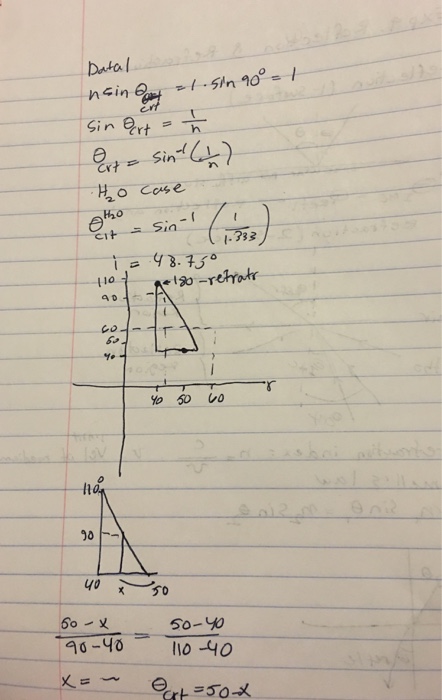 Data1
n sin θcrt = 1 · sin 90° = 1
sin θcrt = 1/n
θcrt = sin⁻¹(1/n)
H₂O case
θ H₂O crt = sin⁻¹ (1/1.333)
i = 48.75°
110
180 - retratr
90
60
50
40
40 50 60 r
110°
90
40 x 50
50 - x / 90 - 40 = 50 - 40 / 110 - 40
x = ~ θcrt = 50 - x